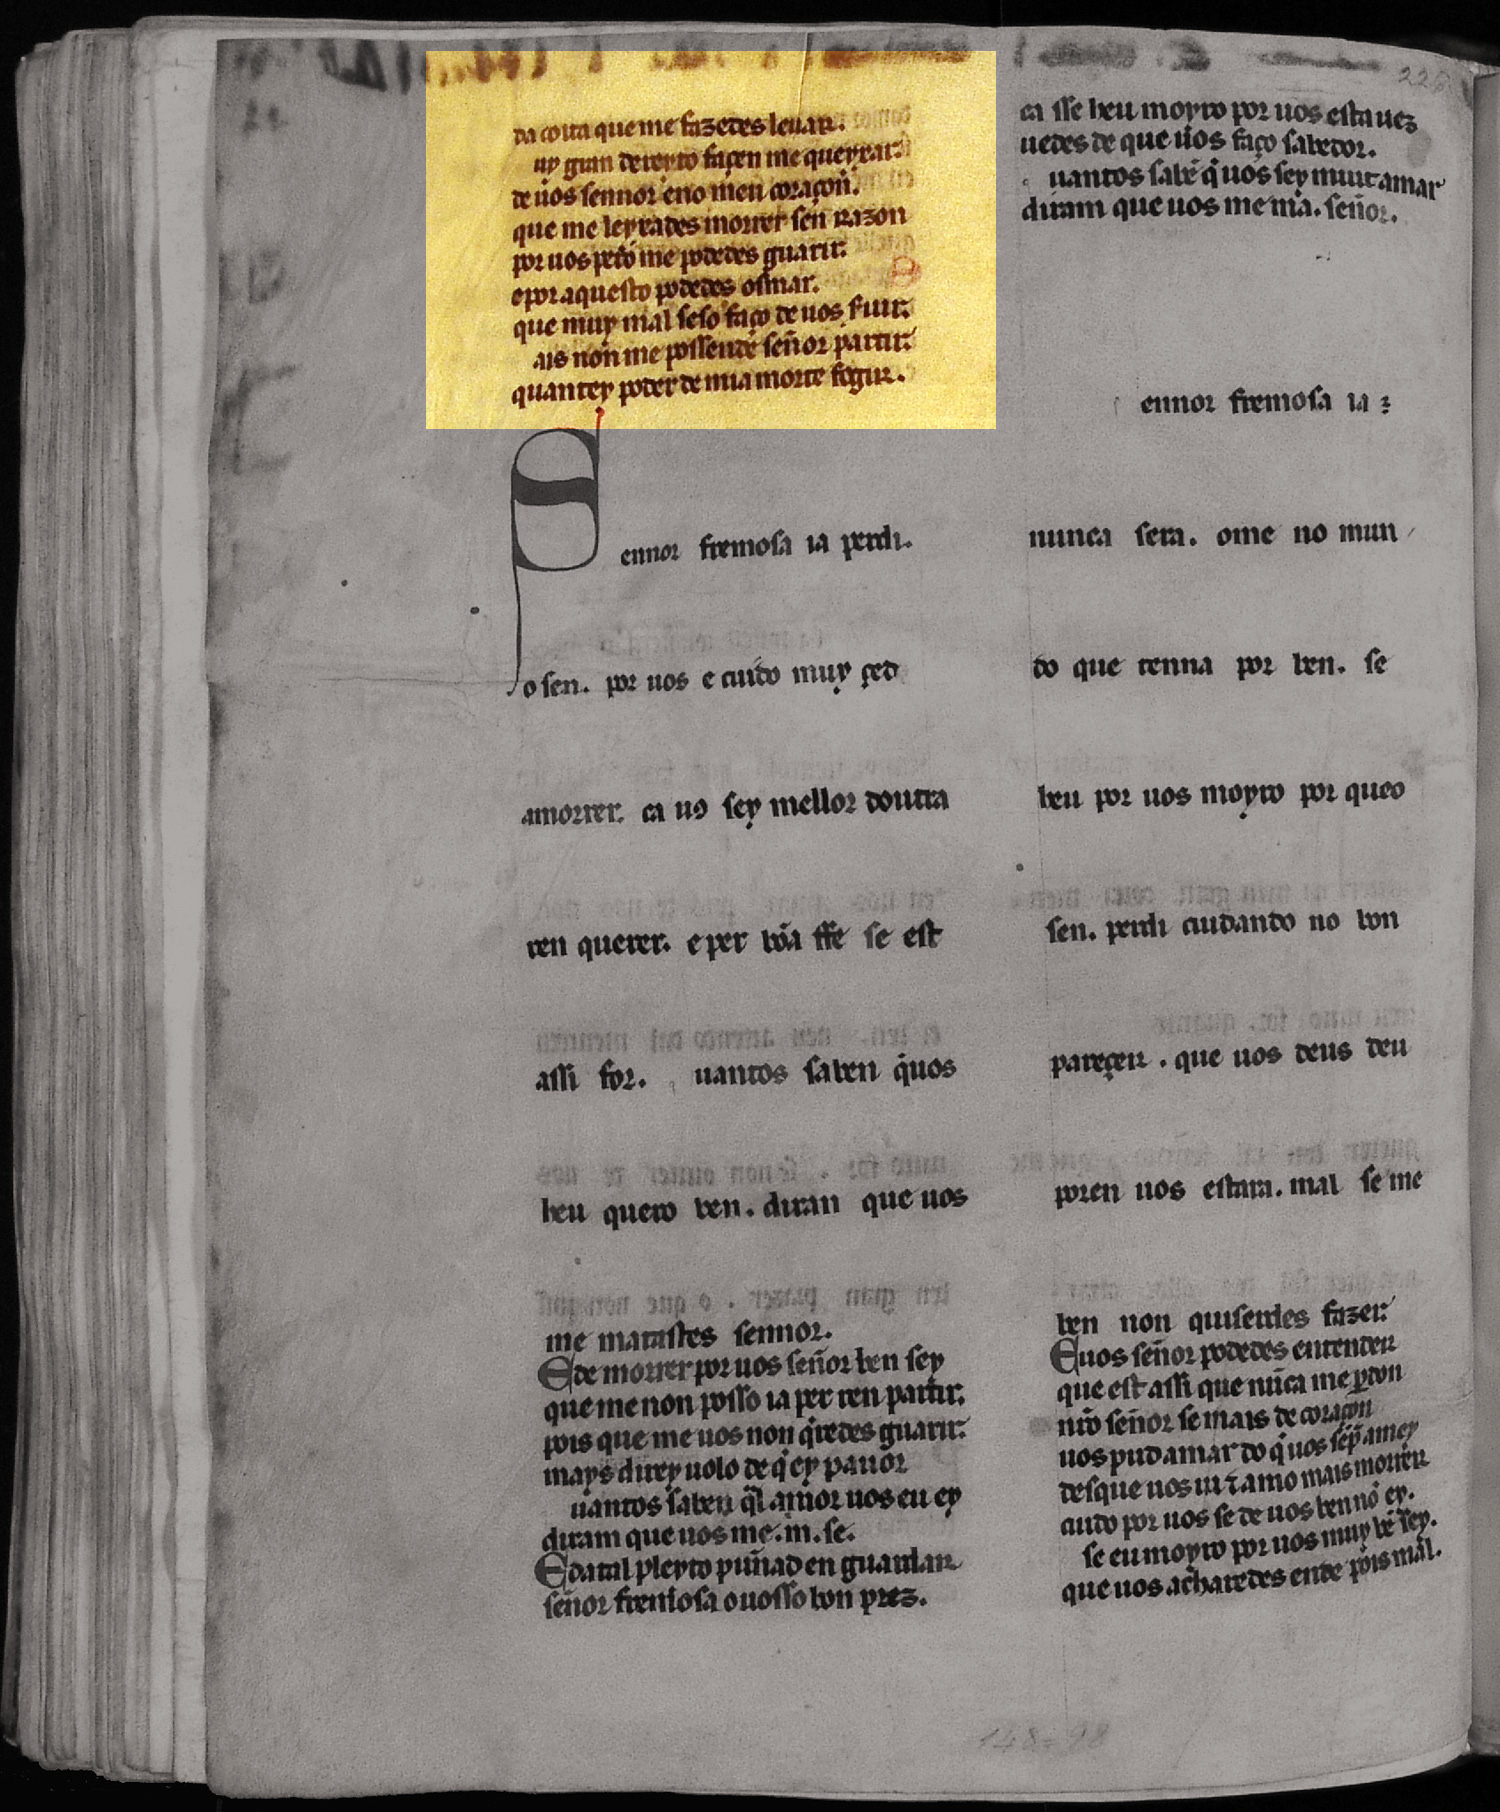 da coita que me fazedes leuar.
uy gran dereyto façen me queyxar.
de uos sennor eno meu coraçon.
que me leyxades morrer sen razon
por uos pero me podedes guarir.
e por aquesto podedes osmar.
que muy mal seso faço de uos seruir.
ais non me possendé señor partir.
quantey poder de mia morte fogir.
Sennor fremosa ia perdi.
o sen. por uos e cuido muy çed
amorrer. ca uꝯ sey mellor doutra
ren querer. e per bõa ffe se est
assi for. uantos saben q̇uos
heu quero ben. diran que uos
me matastes sennor.
E de morrer por uos señor ben sey
que me non posso ia per ren partir.
pois que me uos non q̇redes guarir.
mays direyuolo de q̇ ey pauor
uantos saben q̄l amor uos eu ey
diram que uos me.m.se.
E datal pleyto puñad en guardar
señor fremosa o uosso bon prez.
ca sse heu moyro por uos esta uez
uedes de que uos faço sabedor.
uantos sabē q̇ uos sey muit amar
diram que uos me ma. señor.
ennor fremosa ia
nunca sera. ome no mun
do que tenna por ben. se
heu por uos moyro por queo
sen. perdi cuidando no bon
pareçer. que uos deus deu
poren uos estara. mal se me
ben non quiserdes fazer.
E uos señor podedes entender
que est assi que nũca me ꝑdon
nr̄o señor se mais de coraçon
uos pud amar do q̇ uos sēp amey
desque uos ui ⁊ amo mais morrer
cuido por uos se de uos ben nō ey.
se eu moyro por uos muy bē sey.
que uos acharedes ende pois mal.